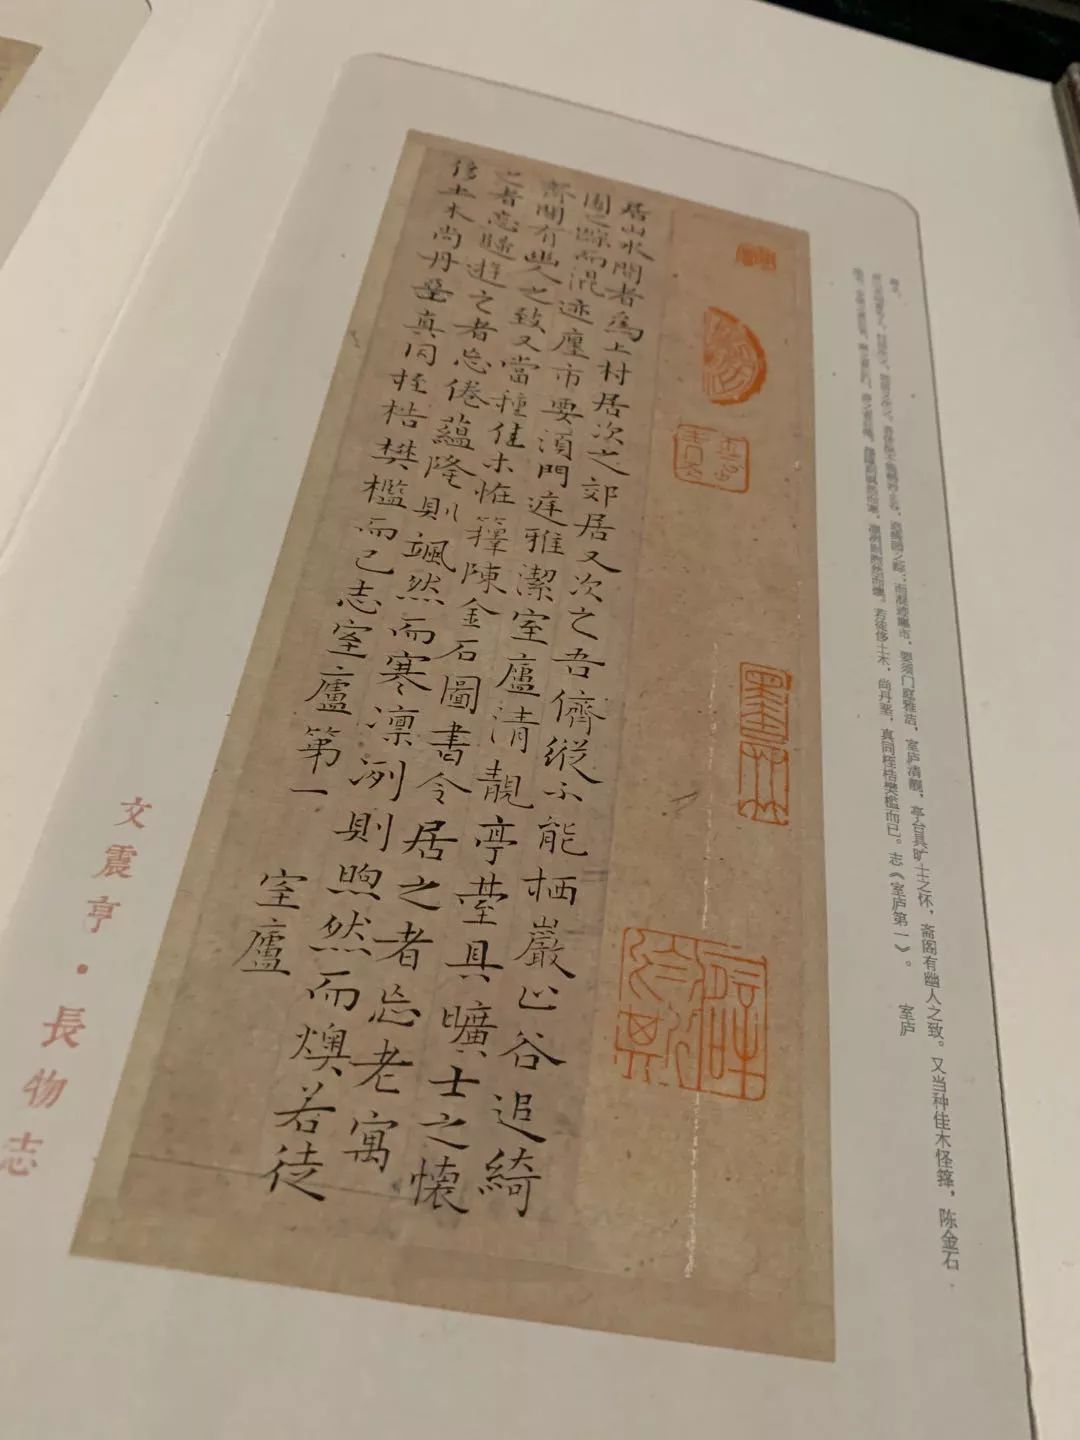 而混迹廛市，要须门庭雅洁，室庐清靓，亭台具旷士之怀，斋阁有幽人之致。又当种佳木怪箨，陈金石
凛冽则煦然而燠。若徒侈土木，尚丹垩，真同桎梏樊槛而已。志《室庐第一》。 室庐
墨林
居山水間者爲上村居次之郊居又次之吾儕縱不能栖巖止谷追綺
園之蹤而混迹廛市要須門庭雅潔室廬清靚亭臺具曠士之懷
齋閣有幽人之致又當種佳木怪籜陳金石圖書令居之者忘老寓
之者忘歸遊之者忘倦蘊隆則颯然而寒凜冽則煦然而燠若徒
侈土木尚丹堊真同桎梏樊檻而已志室廬第一
室廬
文震亨·長物志